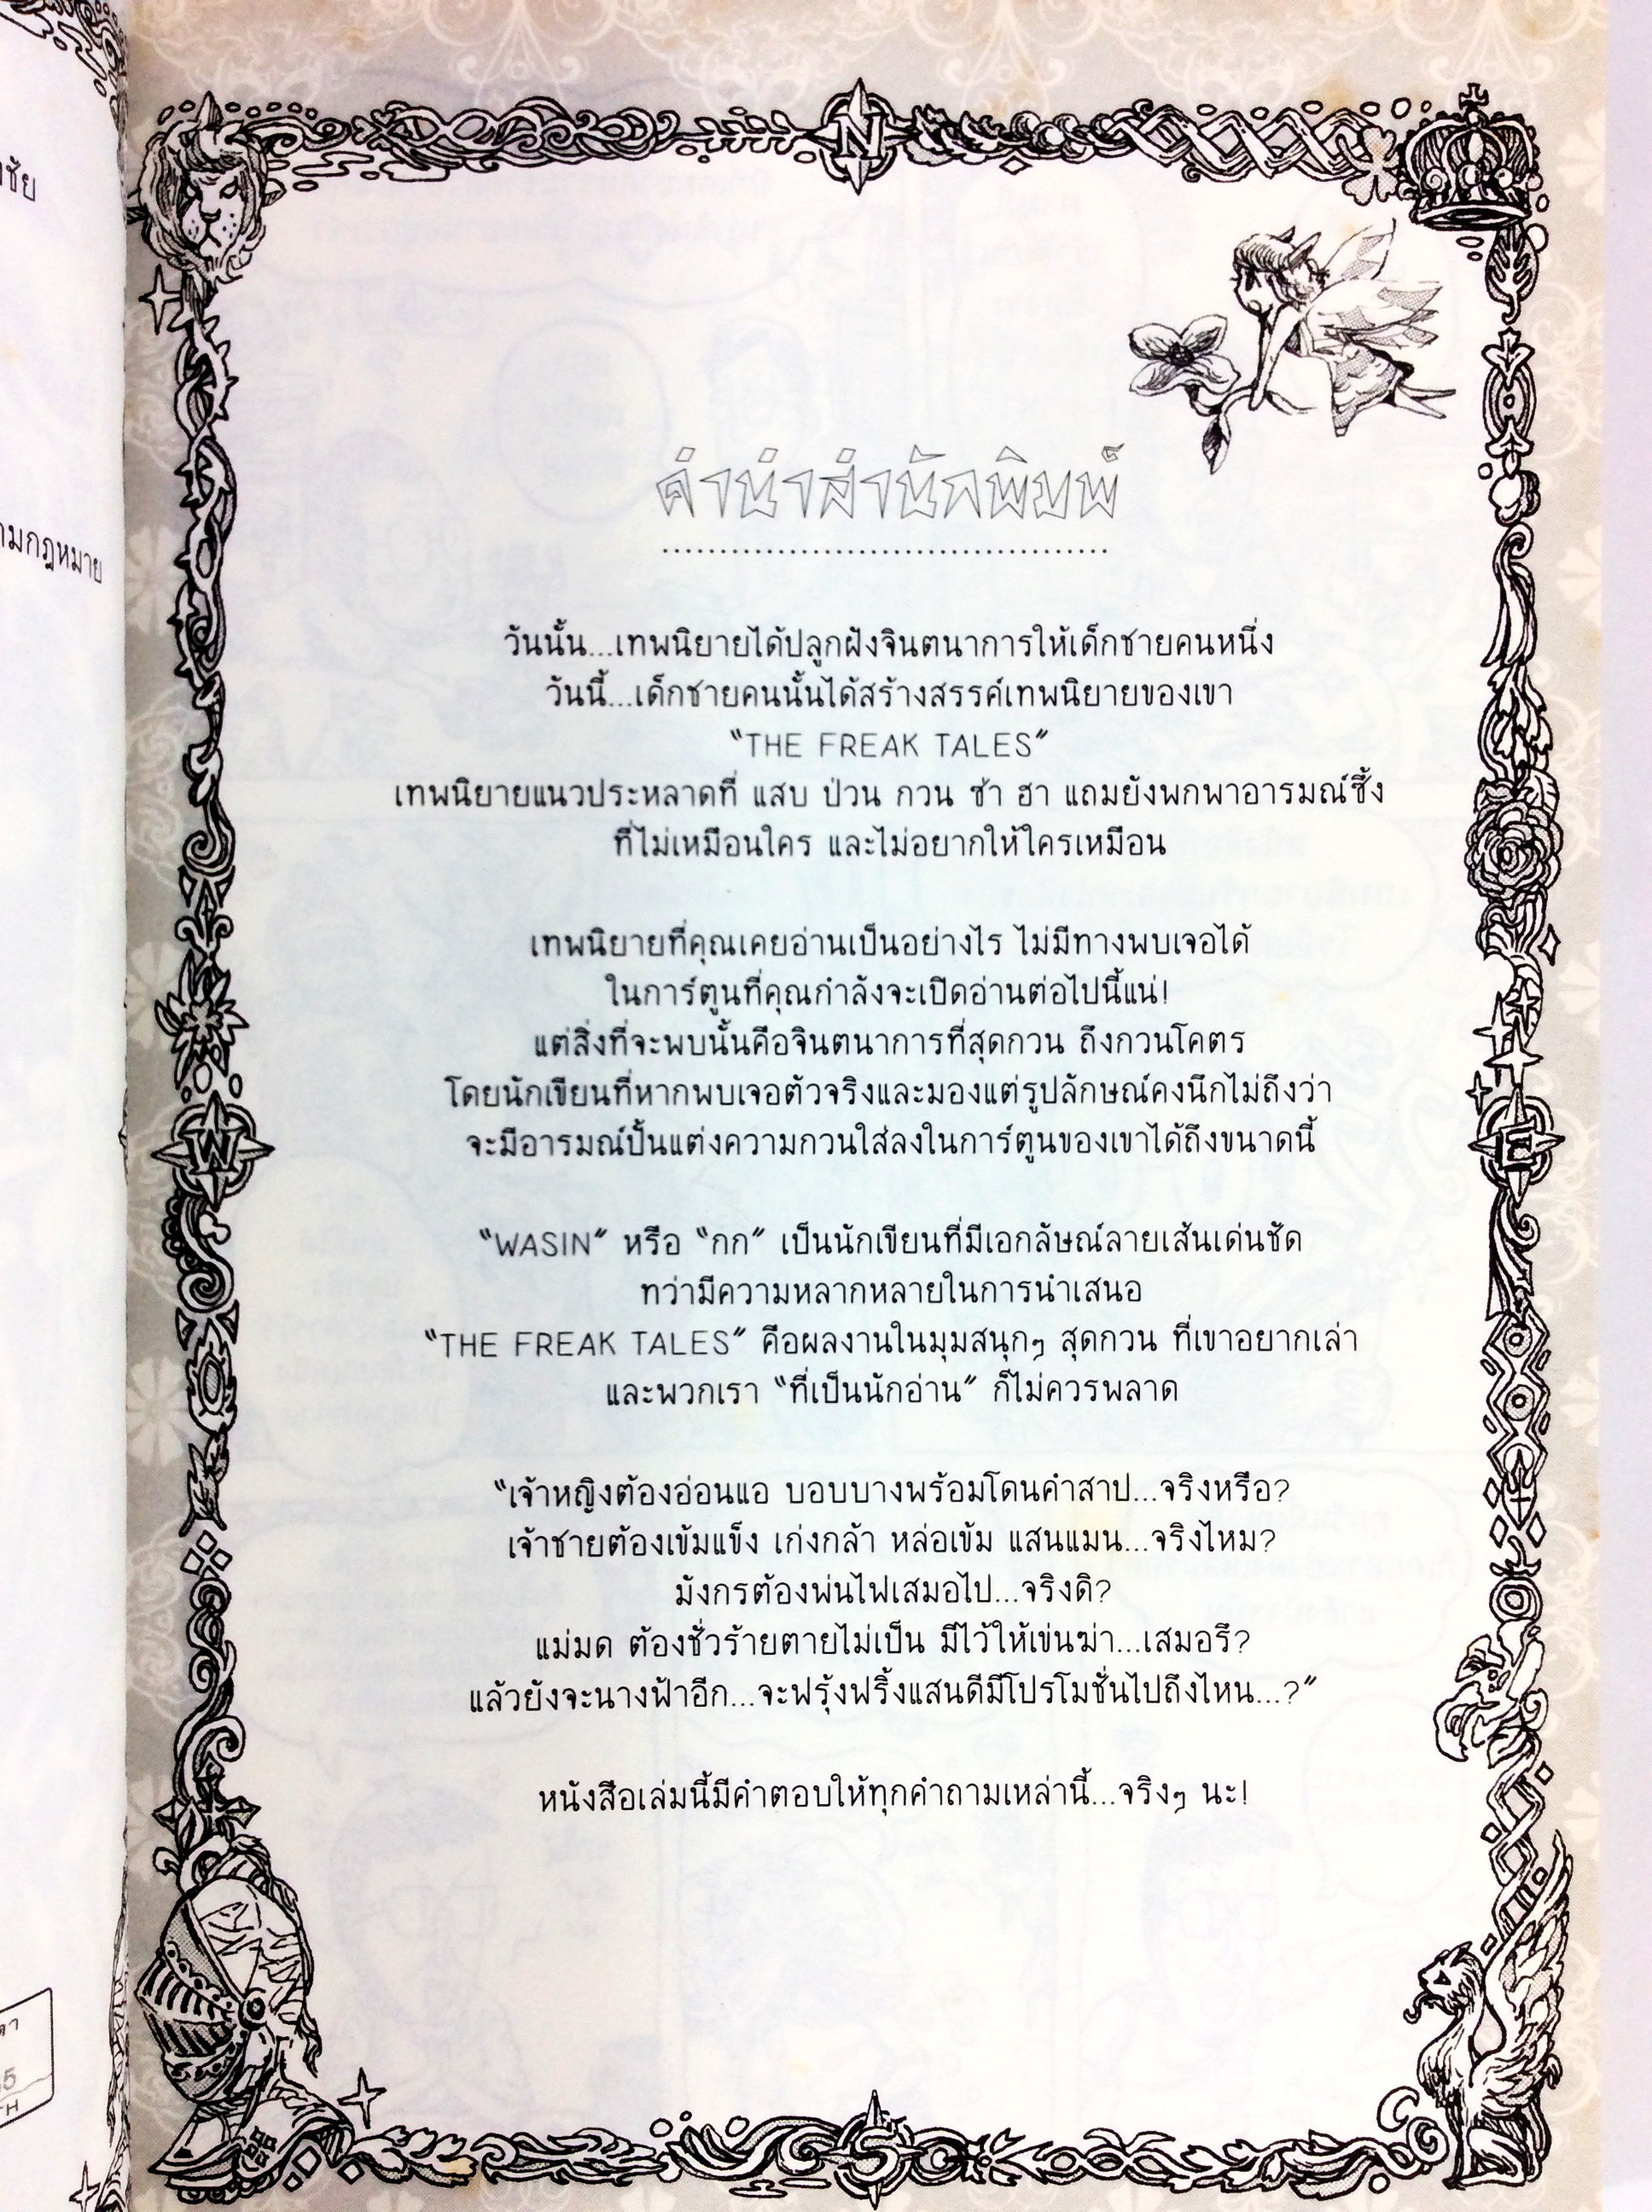 ชัย
ามกฎหมาย
N
คำนำสำนักพิมพ์
วันนั้น...เทพนิยายได้ปลูกฝังจินตนาการให้เด็กชายคนหนึ่ง
วันนี้...เด็กชายคนนั้นได้สร้างสรรค์เทพนิยายของเขา
"THE FREAK TALES"
เทพนิยายแนวประหลาดที่ แสบ ป่วน กวน ซ้า ฮา แถมยังพกพาอารมณ์ซึ้ง
ที่ไม่เหมือนใคร และไม่อยากให้ใครเหมือน
เทพนิยายที่คุณเคยอ่านเป็นอย่างไร ไม่มีทางพบเจอได้
ในการ์ตูนที่คุณกำลังจะเปิดอ่านต่อไปนี้แน่!
แต่สิ่งที่จะพบนั้นคือจินตนาการที่สุดกวน ถึงกวนโคตร
โดยนักเขียนที่หากพบเจอตัวจริงและมองแต่รูปลักษณ์คงนึกไม่ถึงว่า
จะมีอารมณ์ปั้นแต่งความกวนใส่ลงในการ์ตูนของเขาได้ถึงขนาดนี้
W
E
"WASIN" หรือ "กก" เป็นนักเขียนที่มีเอกลัษณ์ลายเส้นเด่นชัด
ทว่ามีความหลากหลายในการนำเสนอ
"THE FREAK TALES" คือผลงานในมุมสนุกๆ สุดกวน ที่เขาอยากเล่า
และพวกเรา "ที่เป็นนักอ่าน" ก็ไม่ควรพลาด
"เจ้าหญิงต้องอ่อนแอ บอบบางพร้อมโดนคำสาป...จริงหรือ?
เจ้าชายต้องเข้มแข็ง เก่งกล้า หล่อเข้ม แสนแมน...จริงไหม?
มังกรต้องพ่นไฟเสมอไป...จริงดิ?
แม่มด ต้องชั่วร้ายตายไม่เป็น มีไว้ให้เข่นฆ่า...เสมอรึ?
แล้วยังจะนางฟ้าอีก...จะฟรุ้งฟริ้งแสนดีมีโปรโมชั่นไปถึงไหน...?"
หนังสือเล่มนี้มีคำตอบให้ทุกคำถามเหล่านี้...จริงๆ นะ!
S